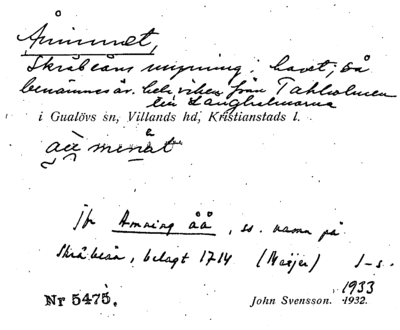 Åminnet,
Skräbeåns mynning i havet; så
benämnes äv. hela viken från Takholmen
till Långholmarna
i Gualövs sn, Villands hd, Kristianstads l.
jfr Amning åå, ss. namn på
Skräbeån, belagt 1714 (Weijer) J-s.
1933
Nr 5475. John Svensson. 1932.